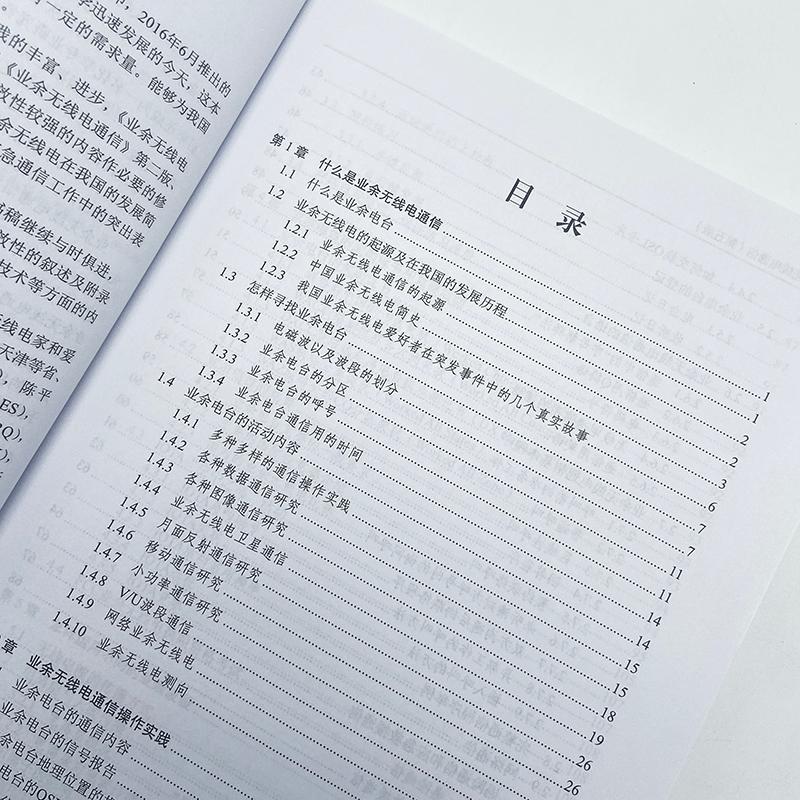 ，2016年6月推出的
迅速发展的今天，这本
一定的需求量。能够为我国
践的丰富、进步，《业余无线电
《业余无线电通信》第二版、
效性较强的内容作必要的修
余无线电在我国的发展简
急通信工作中的突出表
稿继续与时俱进，
效性的叙述及附录
技术等方面的内
线电家和爱
天津等省、
），陈平
ES)，
RQ)，
目 录
第1章 什么是业余无线电通信 1
1.1 什么是业余电台 1
1.2 业余无线电的起源及在我国的发展历程 2
1.2.1 业余无线电通信的起源 2
1.2.2 中国业余无线电简史 3
1.2.3 我国业余无线电爱好者在突发事件中的几个真实故事 6
1.3 怎样寻找业余电台 7
1.3.1 电磁波以及波段的划分 7
1.3.2 业余电台的分区 11
1.3.3 业余电台的呼号 11
1.3.4 业余电台通信用的时间 14
1.4 业余电台的活动内容 14
1.4.1 多种多样的通信操作实践 15
1.4.2 各种数据通信研究 15
1.4.3 各种图像通信研究 18
1.4.4 业余无线电卫星通信 19
1.4.5 月面反射通信研究 26
1.4.6 移动通信研究 26
1.4.7 小功率通信研究
1.4.8 V/U波段通信
1.4.9 网络业余无线电
1.4.10 业余无线电测向
章 业余无线电通信操作实践
业余电台的通信内容
业余电台的信号报告
余电台地理位置的
电台的QST